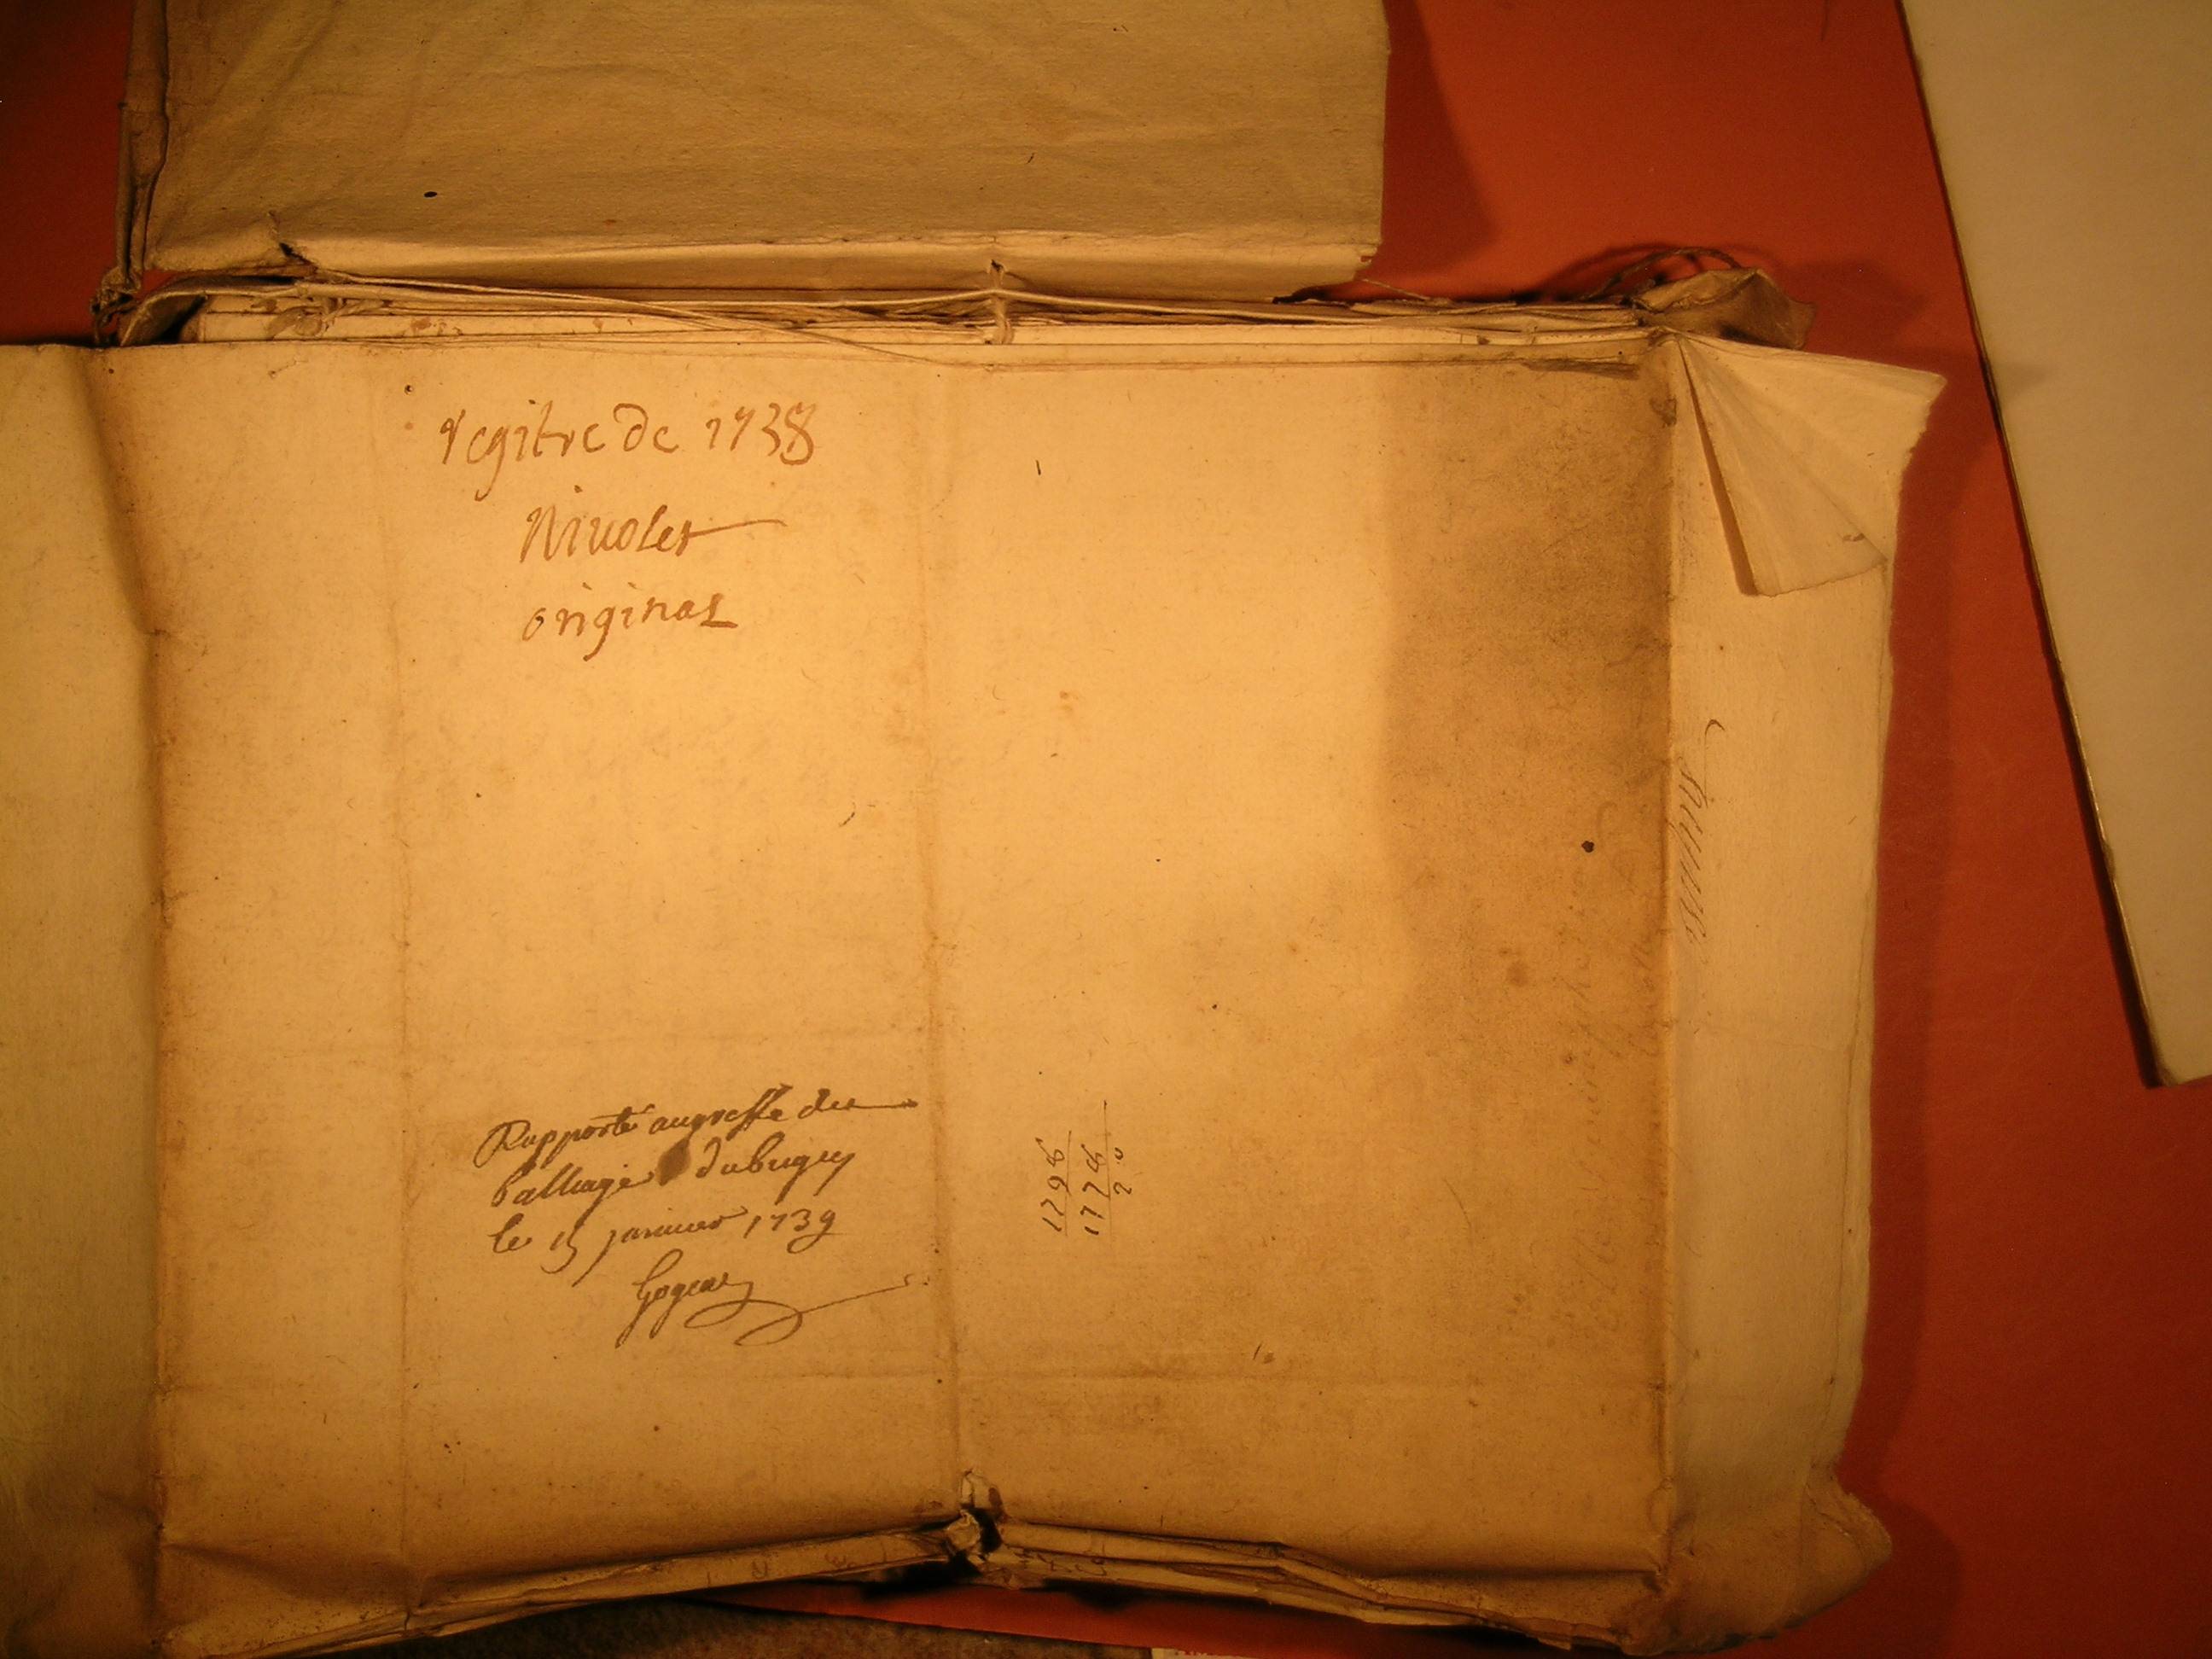 regitre de 1738
Nivolet
original
Rapporté augreffe du
balliage dubugey
le 15 janvier 1739
1798
1778
20